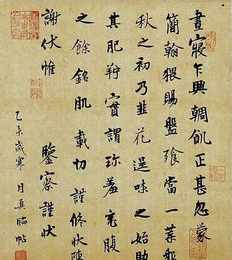 晝寢乍興輖飢正甚忽蒙
簡翰猥賜盤飧當一葉報
秋之初乃韭花逞味之始助
其肥羜實謂珍羞充腹
之餘銘肌載切謹修狀陳
謝伏惟
鑒察謹狀
乙未歲寒月真臨帖